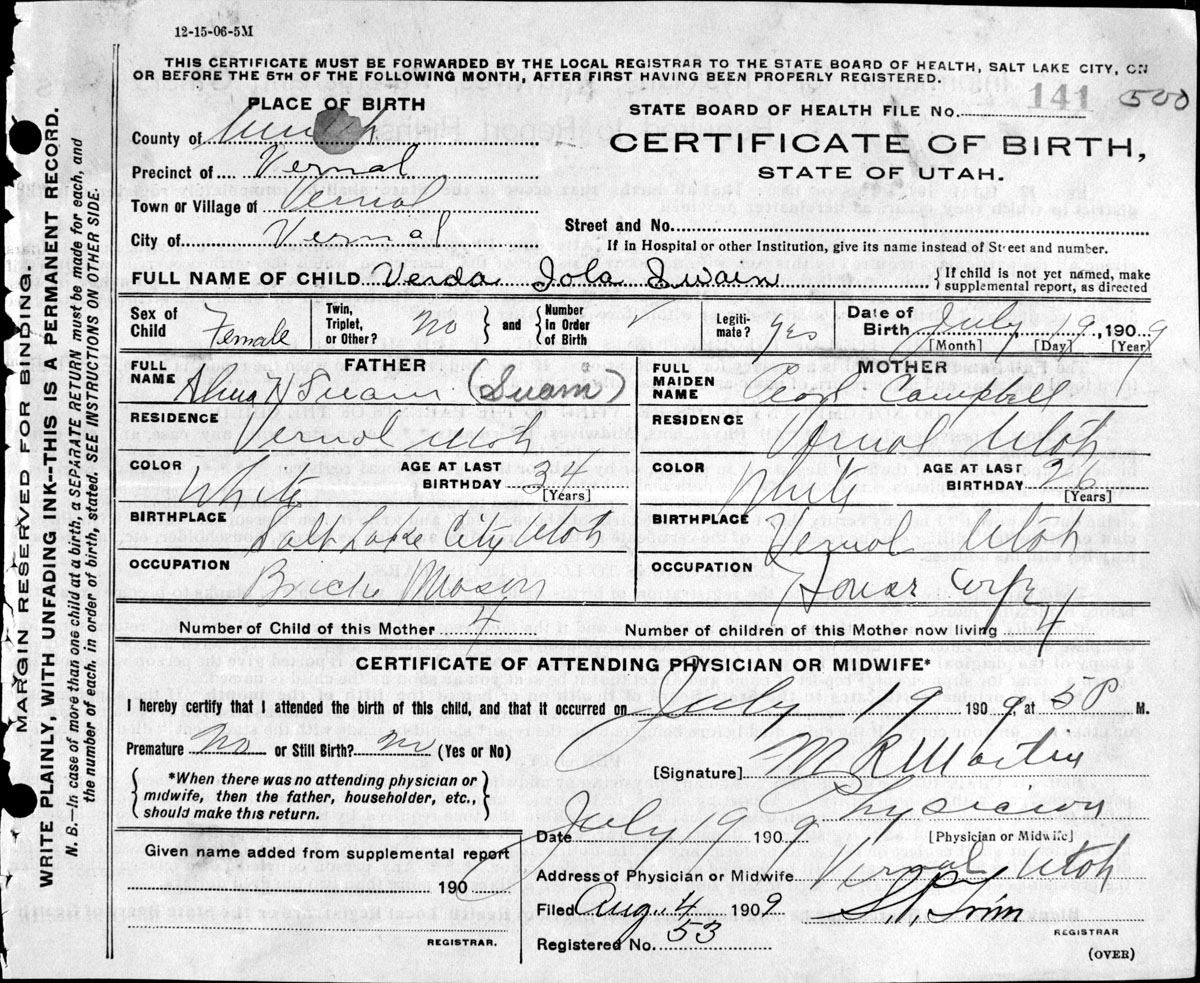 12-15-06-5M
THIS CERTIFICATE MUST BE FORWARDED BY THE LOCAL REGISTRAR TO THE STATE BOARD OF HEALTH, SALT LAKE CITY, ON
OR BEFORE THE 5TH OF THE FOLLOWING MONTH, AFTER FIRST HAVING BEEN PROPERLY REGISTERED.
MARGIN RESERVED FOR BINDING.
WRITE PLAINLY, WITH UNFADING INK--THIS IS A PERMANENT RECORD.
N. B.—In case of more than one child at a birth, a SEPARATE RETURN must be made for each, and
the number of each, in order of birth, stated. SEE INSTRUCTIONS ON OTHER SIDE.
PLACE OF BIRTH
County of
Precinct of Vernal
Town or Village of Vernal
City of Vernal
STATE BOARD OF HEALTH FILE No. 141 500
CERTIFICATE OF BIRTH,
STATE OF UTAH.
Street and No.
If in Hospital or other Institution, give its name instead of Street and number.
FULL NAME OF CHILD Verda Iola Swain } If child is not yet named, make supplemental report, as directed
Sex of Child Female Twin, Triplet, or Other? No } and { Number In Order of Birth Legiti- mate? Yes Date of Birth July 19, 1909
[Month] [Day] [Year]
FATHER
FULL NAME H Swain (Swain)
RESIDENCE Vernal Utah
COLOR White AGE AT LAST BIRTHDAY 34 [Years]
BIRTHPLACE Salt Lake City Utah
OCCUPATION Brick Mason
MOTHER
FULL MAIDEN NAME Pearl Campbell
RESIDENCE Vernal Utah
COLOR White AGE AT LAST BIRTHDAY 26 [Years]
BIRTHPLACE Vernal Utah
OCCUPATION House Wife
Number of Child of this Mother 4 Number of children of this Mother now living 4
CERTIFICATE OF ATTENDING PHYSICIAN OR MIDWIFE*
I hereby certify that I attended the birth of this child, and that it occurred on July 19 1909, at 5 P M.
Premature No or Still Birth? no (Yes or No)
{ *When there was no attending physician or
midwife, then the father, householder, etc.,
should make this return. }
[Signature] Martin
Physician
[Physician or Midwife]
Date July 19 1909
Given name added from supplemental report
190
REGISTRAR.
Address of Physician or Midwife Vernal Utah
Filed Aug 4 1909
REGISTRAR
Registered No. 53
(OVER)